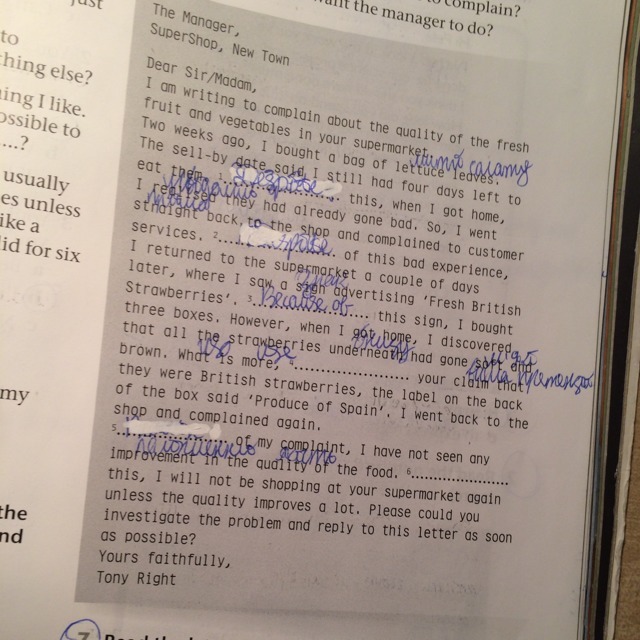 just
to complain?
want the manager to do?
to
thing else?
ing I like.
ossible to
....?
usually
es unless
ike a
lid for six
my
the
nd
The Manager,
SuperShop, New Town
Dear Sir/Madam,
I am writing to complain about the quality of the fresh
fruit and vegetables in your supermarket.
Two weeks ago, I bought a bag of lettuce leaves.
The sell-by date said I still had four days left to
eat them. 1 Despite this, when I got home,
I realised they had already gone bad. So, I went
straight back to the shop and complained to customer
services. 2 of this bad experience,
I returned to the supermarket a couple of days
later, where I saw a sign advertising 'Fresh British
Strawberries'. 3 Because of this sign, I bought
three boxes. However, when I got home, I discovered
that all the strawberries underneath had gone soft and
brown. What is more, 4 your claim that
they were British strawberries, the label on the back
of the box said 'Produce of Spain'. I went back to the
shop and complained again.
5 of my complaint, I have not seen any
improvement in the quality of the food. 6
this, I will not be shopping at your supermarket again
unless the quality improves a lot. Please could you
investigate the problem and reply to this letter as soon
as possible?
Yours faithfully,
Tony Right
7